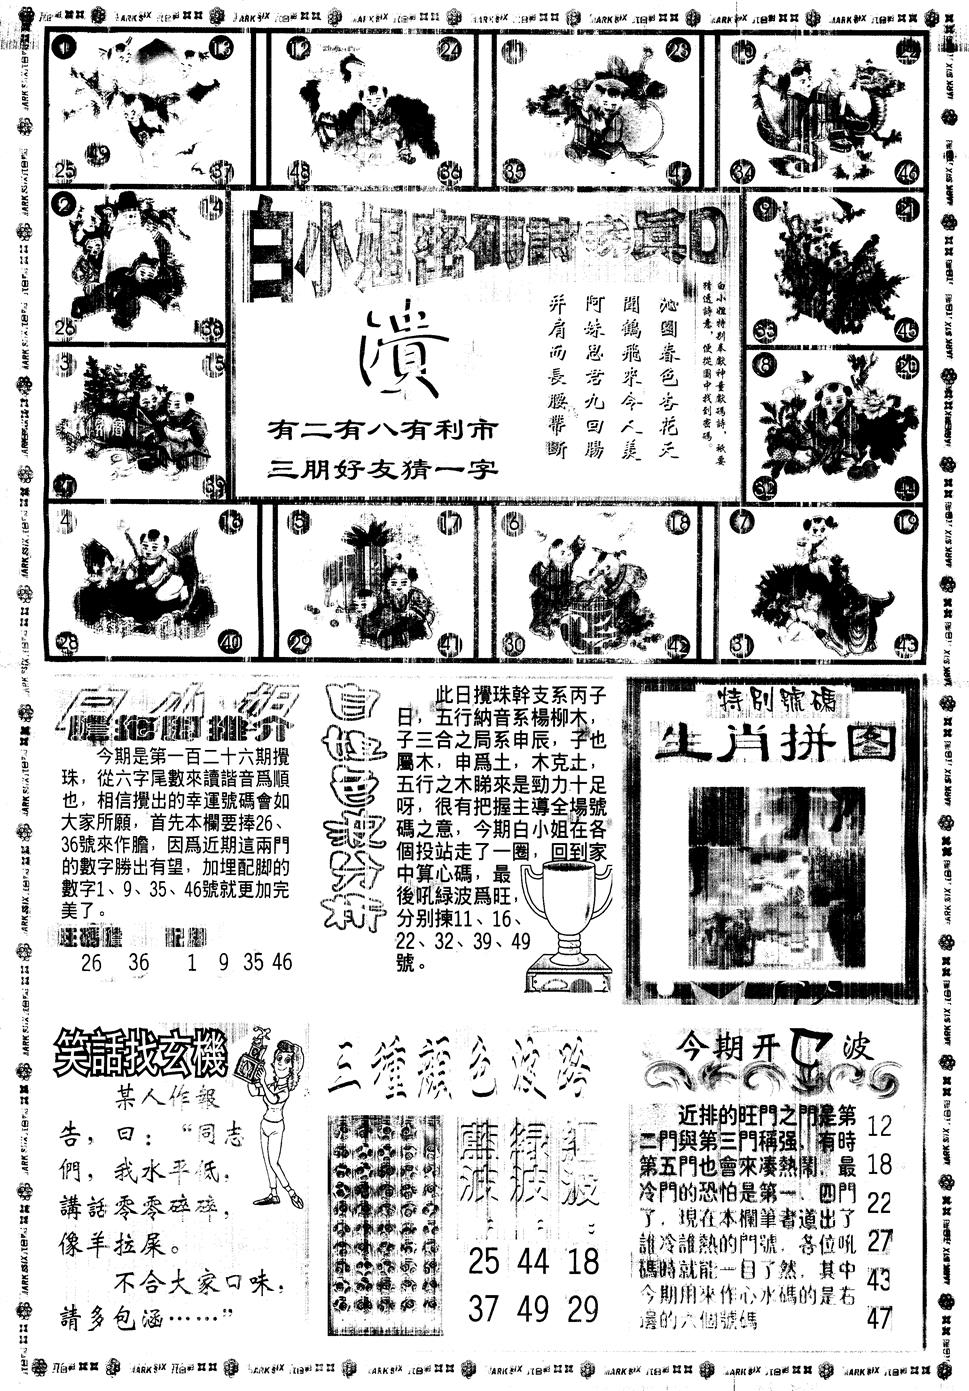 1 13 25 49 37
12 24 48 36
11 23 35 47
10 22 34 46
2 14 26 38
白小姐密碼詩
9 21 33 45
白小姐特别奉獻神童獻碼詩，祇要
猜透詩意，便從圖中找到密碼。
沁園春色杏花天
聞鶴飛來令人羨
阿妹思君九回腸
并肩而長腰帶斷
潰
有二有八有利市
三朋好友猜一字
3 15 27 39
8 20 32 44
4 16 28 40
5 17 29 41
6 18 30 42
7 19 31 43
白小姐
今期是第一百二十六期攪
珠，從六字尾數來讀諧音爲順
也，相信攪出的幸運號碼會如
大家所願，首先本欄要捧26、
36號來作膽，因爲近期這兩門
的數字勝出有望，加埋配脚的
數字1、9、35、46號就更加完
美了。
26 36 1 9 35 46
此日攪珠幹支系丙子
日，五行納音系楊柳木，
子三合之局系申辰，子也
屬木，申爲土，木克土，
五行之木睇來是勁力十足
呀，很有把握主導全場號
碼之意，今期白小姐在各
個投站走了一圈，回到家
中算心碼，最
後吼緑波爲旺，
分别揀11、16、
22、32、39、49
號。
特别號碼
生肖拼图
笑話找玄機
某人作報
告，曰：“同志
們，我水平低，
講話零零碎碎，
像羊拉屎。
不合大家口味，
請多包涵……”
三種顔色波路
藍波：
緑波：
紅波：
25 44 18
37 49 29
今期开七波
近排的旺門之門是第
二門與第三門稱强，有時
第五門也會來凑熱鬧，最
冷門的恐怕是第一、四門
了，現在本欄筆者道出了
誰冷誰熱的門號，各位吼
碼時就能一目了然，其中
今期用來作心水碼的是右
邊的六個號碼
12
18
22
27
43
47